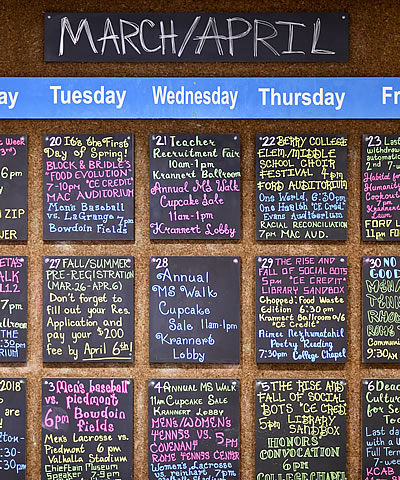 MARCH/APRIL
ay
Tuesday
Wednesday
Thursday
Fr
6pm
ZIP
20 It's the First
Day of Spring!
BLOCK & BRIDLE'S
"FOOD EVOLUTION"
7-10pm "CE CREDIT"
MAC AUDITORIUM
Men's Baseball
vs. LaGrange 7pm
Bowdoin Fields
21 Teacher
Recruitment Fair
10am-1pm
Krannert Ballroom
Annual MS Walk
Cupcake Sale
11am-1pm
Krannert Lobby
22 BERRY COLLEGE
ELEM/MIDDLE
SCHOOL CHOIR
FESTIVAL 4pm
FORD AUDITORIUM
One World, 6:30pm
One Health "CE Credit"
Evans Auditorium
RACIAL RECONCILIATION
7pm MAC AUD.
23 Last
withdraw
automatic
Habitat for
Humanity
Cookout
FORD
11pm
27 FALL/SUMMER
PRE-REGISTRATION
(MAR.26-APR.6)
Don't forget to
fill out your Res.
Application and
pay your $200
fee by April 6th!
28
Annual
MS Walk
Cupcake
Sale 11am-1pm
Krannert
Lobby
29 THE RISE AND
FALL OF SOCIAL BOTS
5pm "CE CREDIT"
LIBRARY SANDBOX
Chopped: Food Waste
Edition 6:30pm
Krannert Ballroom
"CE Credit"
Aimee Nezhukumatathil
Poetry Reading
7:30pm College Chapel
30 NO
GOOD
MEN/
TENN
RHO
ROM
Commun
9:30AM
2018
3 Men's baseball
vs. piedmont
6pm Bowdoin
fields
Men's Lacrosse vs.
Piedmont 6pm
Valhalla Stadium
Chieftain Museum
Speaker
4 ANNUAL MS WALK
11am CUPCAKE SALE
KRANNERT LOBBY
MEN'S/WOMEN'S
TENNIS VS. 5pm
COVENANT
ROME TENNIS CENTER
Women's Lacrosse
5 THE RISE AND
FALL OF SOCIAL
BOTS "CE CREDI
5pm LIBRARY
SANDBOX
HONORS'
CONVOCATION
6pm
COLLEGE CHAPEL
6 Dead
Cultur
for Se
Last da
with a
Full Ter
KCAB